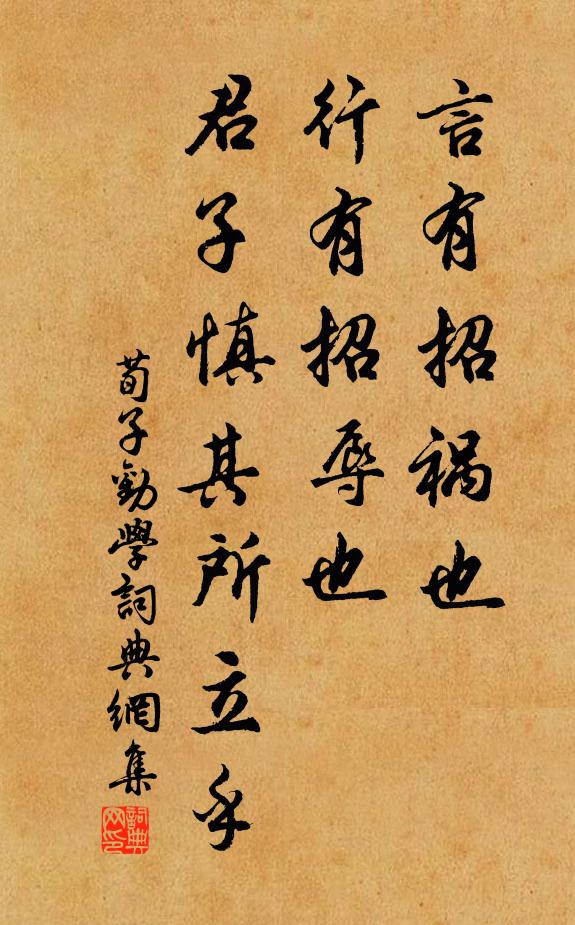 言有招祸也
行有招辱也
君子慎其所立乎
荀子勸學詞典網集
詞典网印